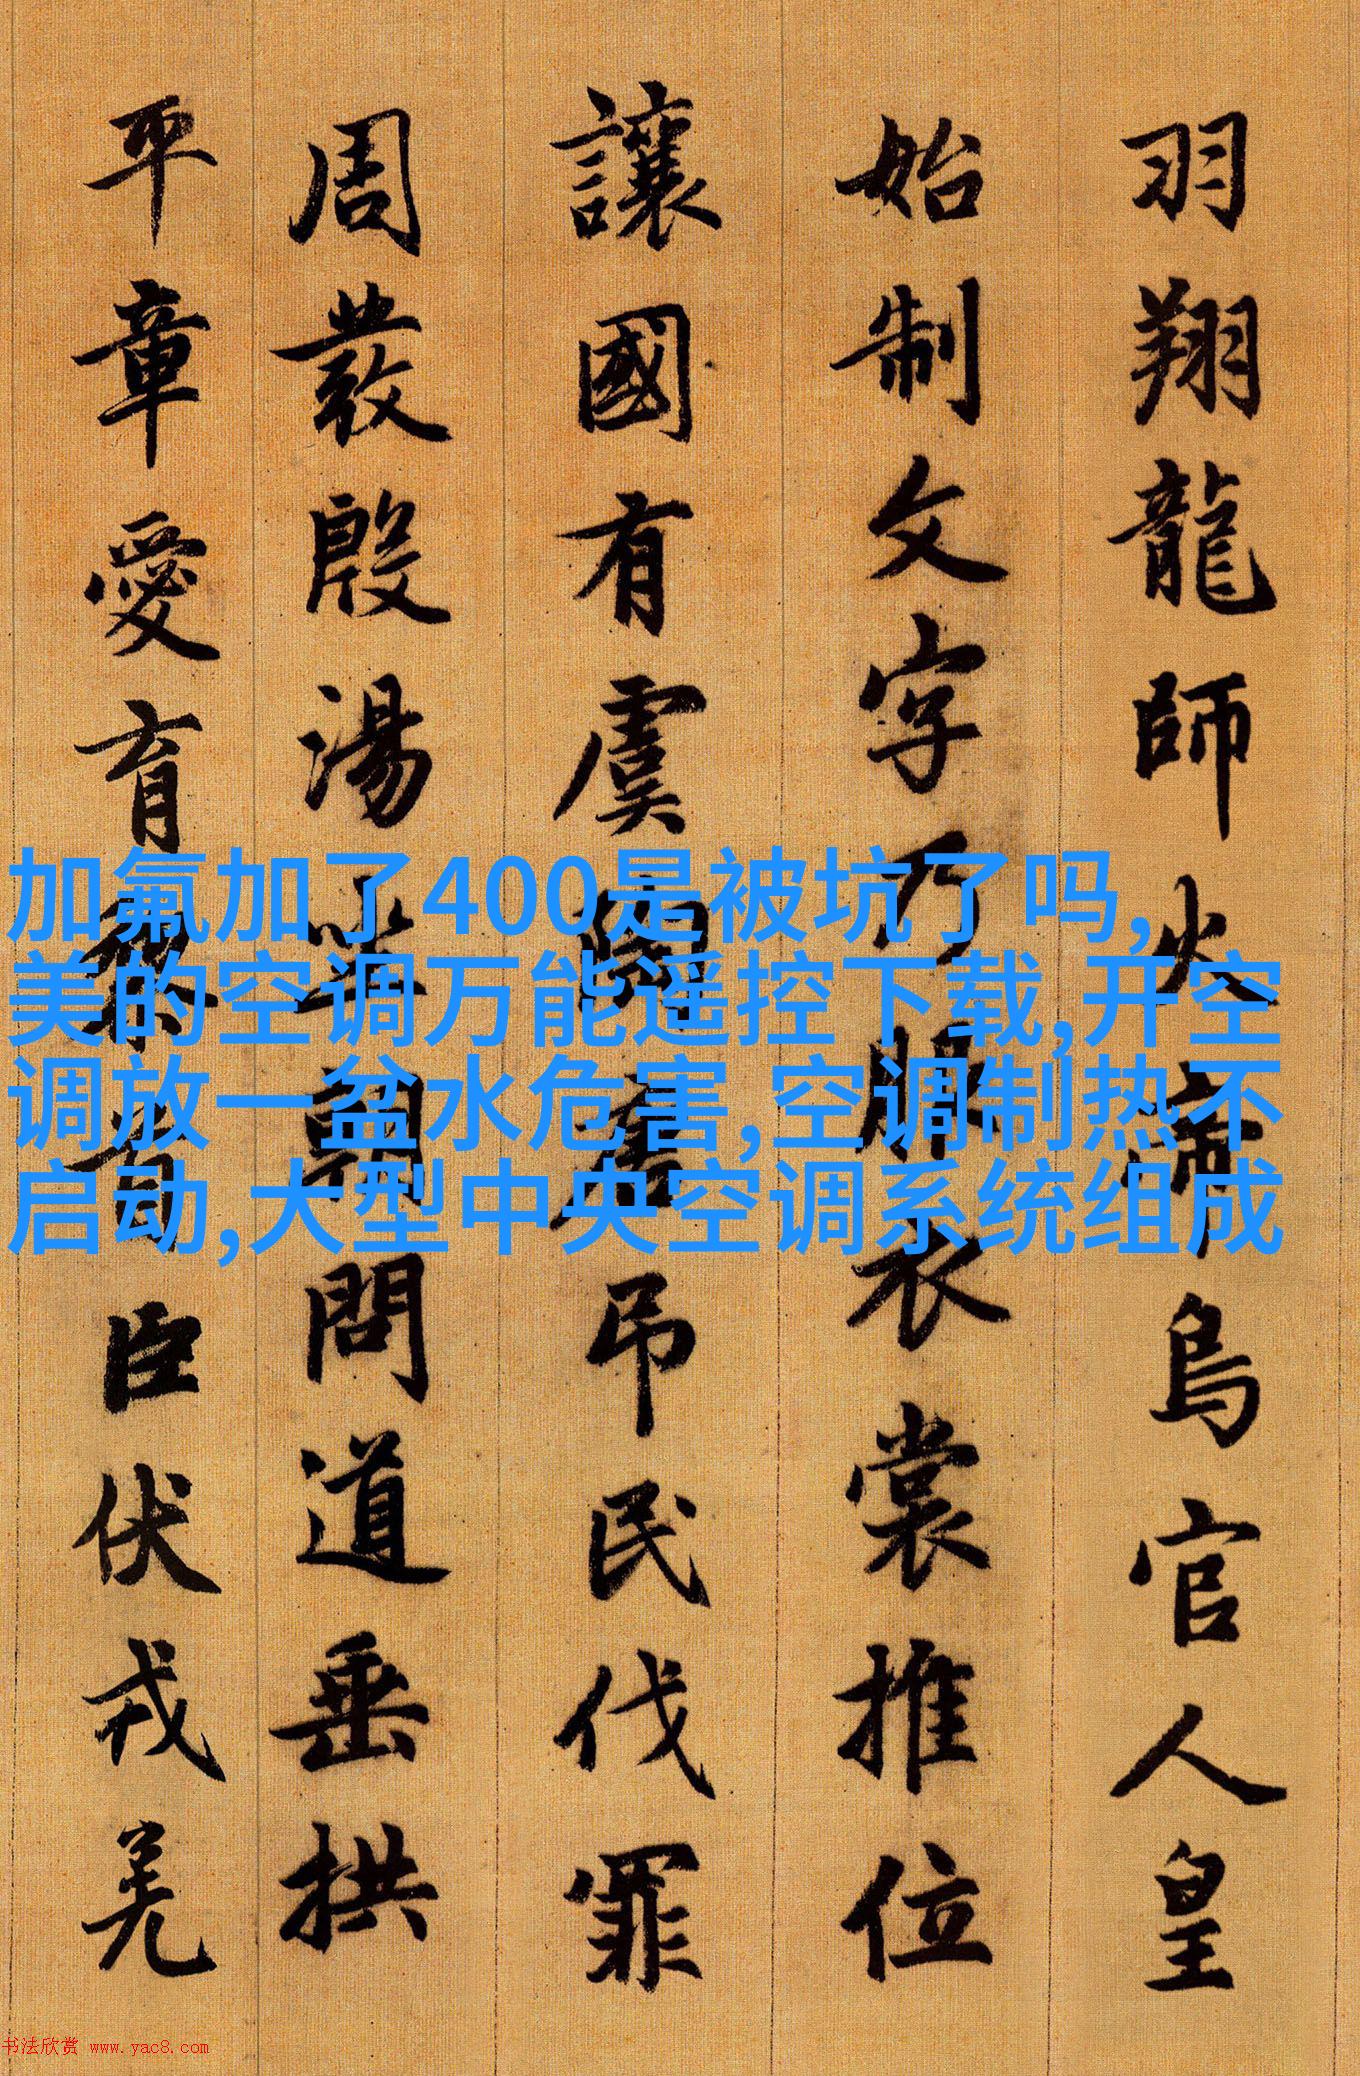 羽翔龍師火帝鳥官人皇
始制文字乃服衣裳推位
讓國有虞陶唐吊民伐罪
周發殷湯坐朝問道垂拱
平章愛育黎首臣伏戎羌
加氟加了400是被坑了吗,
美的空调万能遥控下载,开空
调放一盆水危害,空调制热不
启动,大型中央空调系统组成
书法欣赏 www.yac8.com